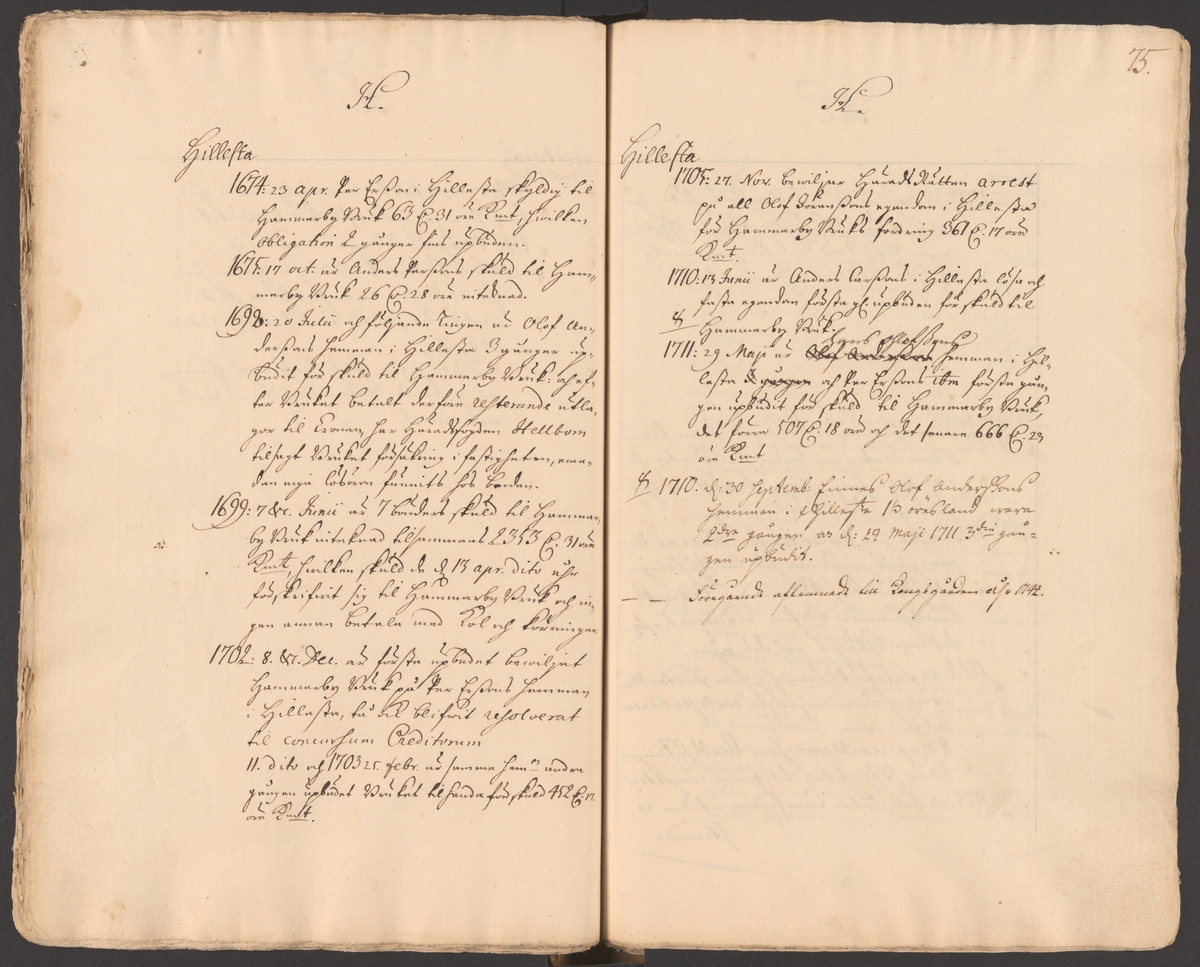 H.
Hillesta
1674: 23 apr. Per Erßon i Hillesta skyldig til
Hammarby Bruk 63 D. 31 öre Kmt, hwilken
obligation 2 gånger fins upbuden.
1675: 17 oct. är Anders Perßons skuld til Ham-
marby Bruk 26 D. 28 öre intecknad.
1698: 20 Julii och följande Tingen är Olof An-
derßons hemman i Hillesta 3 gånger up-
budit för skuld til Hammarby Bruk: och ef-
ter Bruket betalt derföre resterande utla-
gor til Cronan, har Häradsfogden Stellbom
tilsagt Bruket försäkring i fastigheten, eme-
dan inga lösören funnits hos bonden.
1699: 7 &c. Junii är 7 bönders skuld til Hammar-
by Bruk intecknad tilsammans 2353 D. 31 öre
Kmt, hwilken skuld de d. 13 apr. dito åhr
förskrifwit sig til Hammarby Bruk och in-
gen annan betala med Kol och körningar.
1702: 8. &c. Dec. är första upbudet bewiljat
Hammarby Bruk på Per Erßons hemman
i Hillesta, då det blifwit resolverat
til concursum Creditorum
11. dito och 1703 25. febr. är samma hemn andra
gången upbudet Bruket tilhanda för skuld 452 D. 17.
öre Kmt.
75.
H.
Hillesta
1705: 27. Nov. bewiljar HäradsRätten arrest
på all Olof Göranßons egendom i Hillesta
för Hammarby Bruks fordring 361 D. 17 öre
Kmt.
1710: 13 Junii är Anders Larßons i Hillesta lösa och
fasta egendom första g. upbuden för skuld til
Hammarby Bruk.
Hans Olofßons
1711: 29 Maji är Olof Anderßons hemman i Hil-
lesta gången och Per Erßons ibm första gån-
gen upbudit för skuld til Hammarby Bruk,
det förra 507 D. 18 öre och det senare 666 D. 23
öre Kmt
1710. d: 30 Septemb: finnes Olof Anderßons
hemman i Hillesta 13 öresland wara
2dra gången och d: 29 Maji 1711 3die gån-
gen upbudit.
— — Föregående aflemnade till Kongsgården åhr 1744.